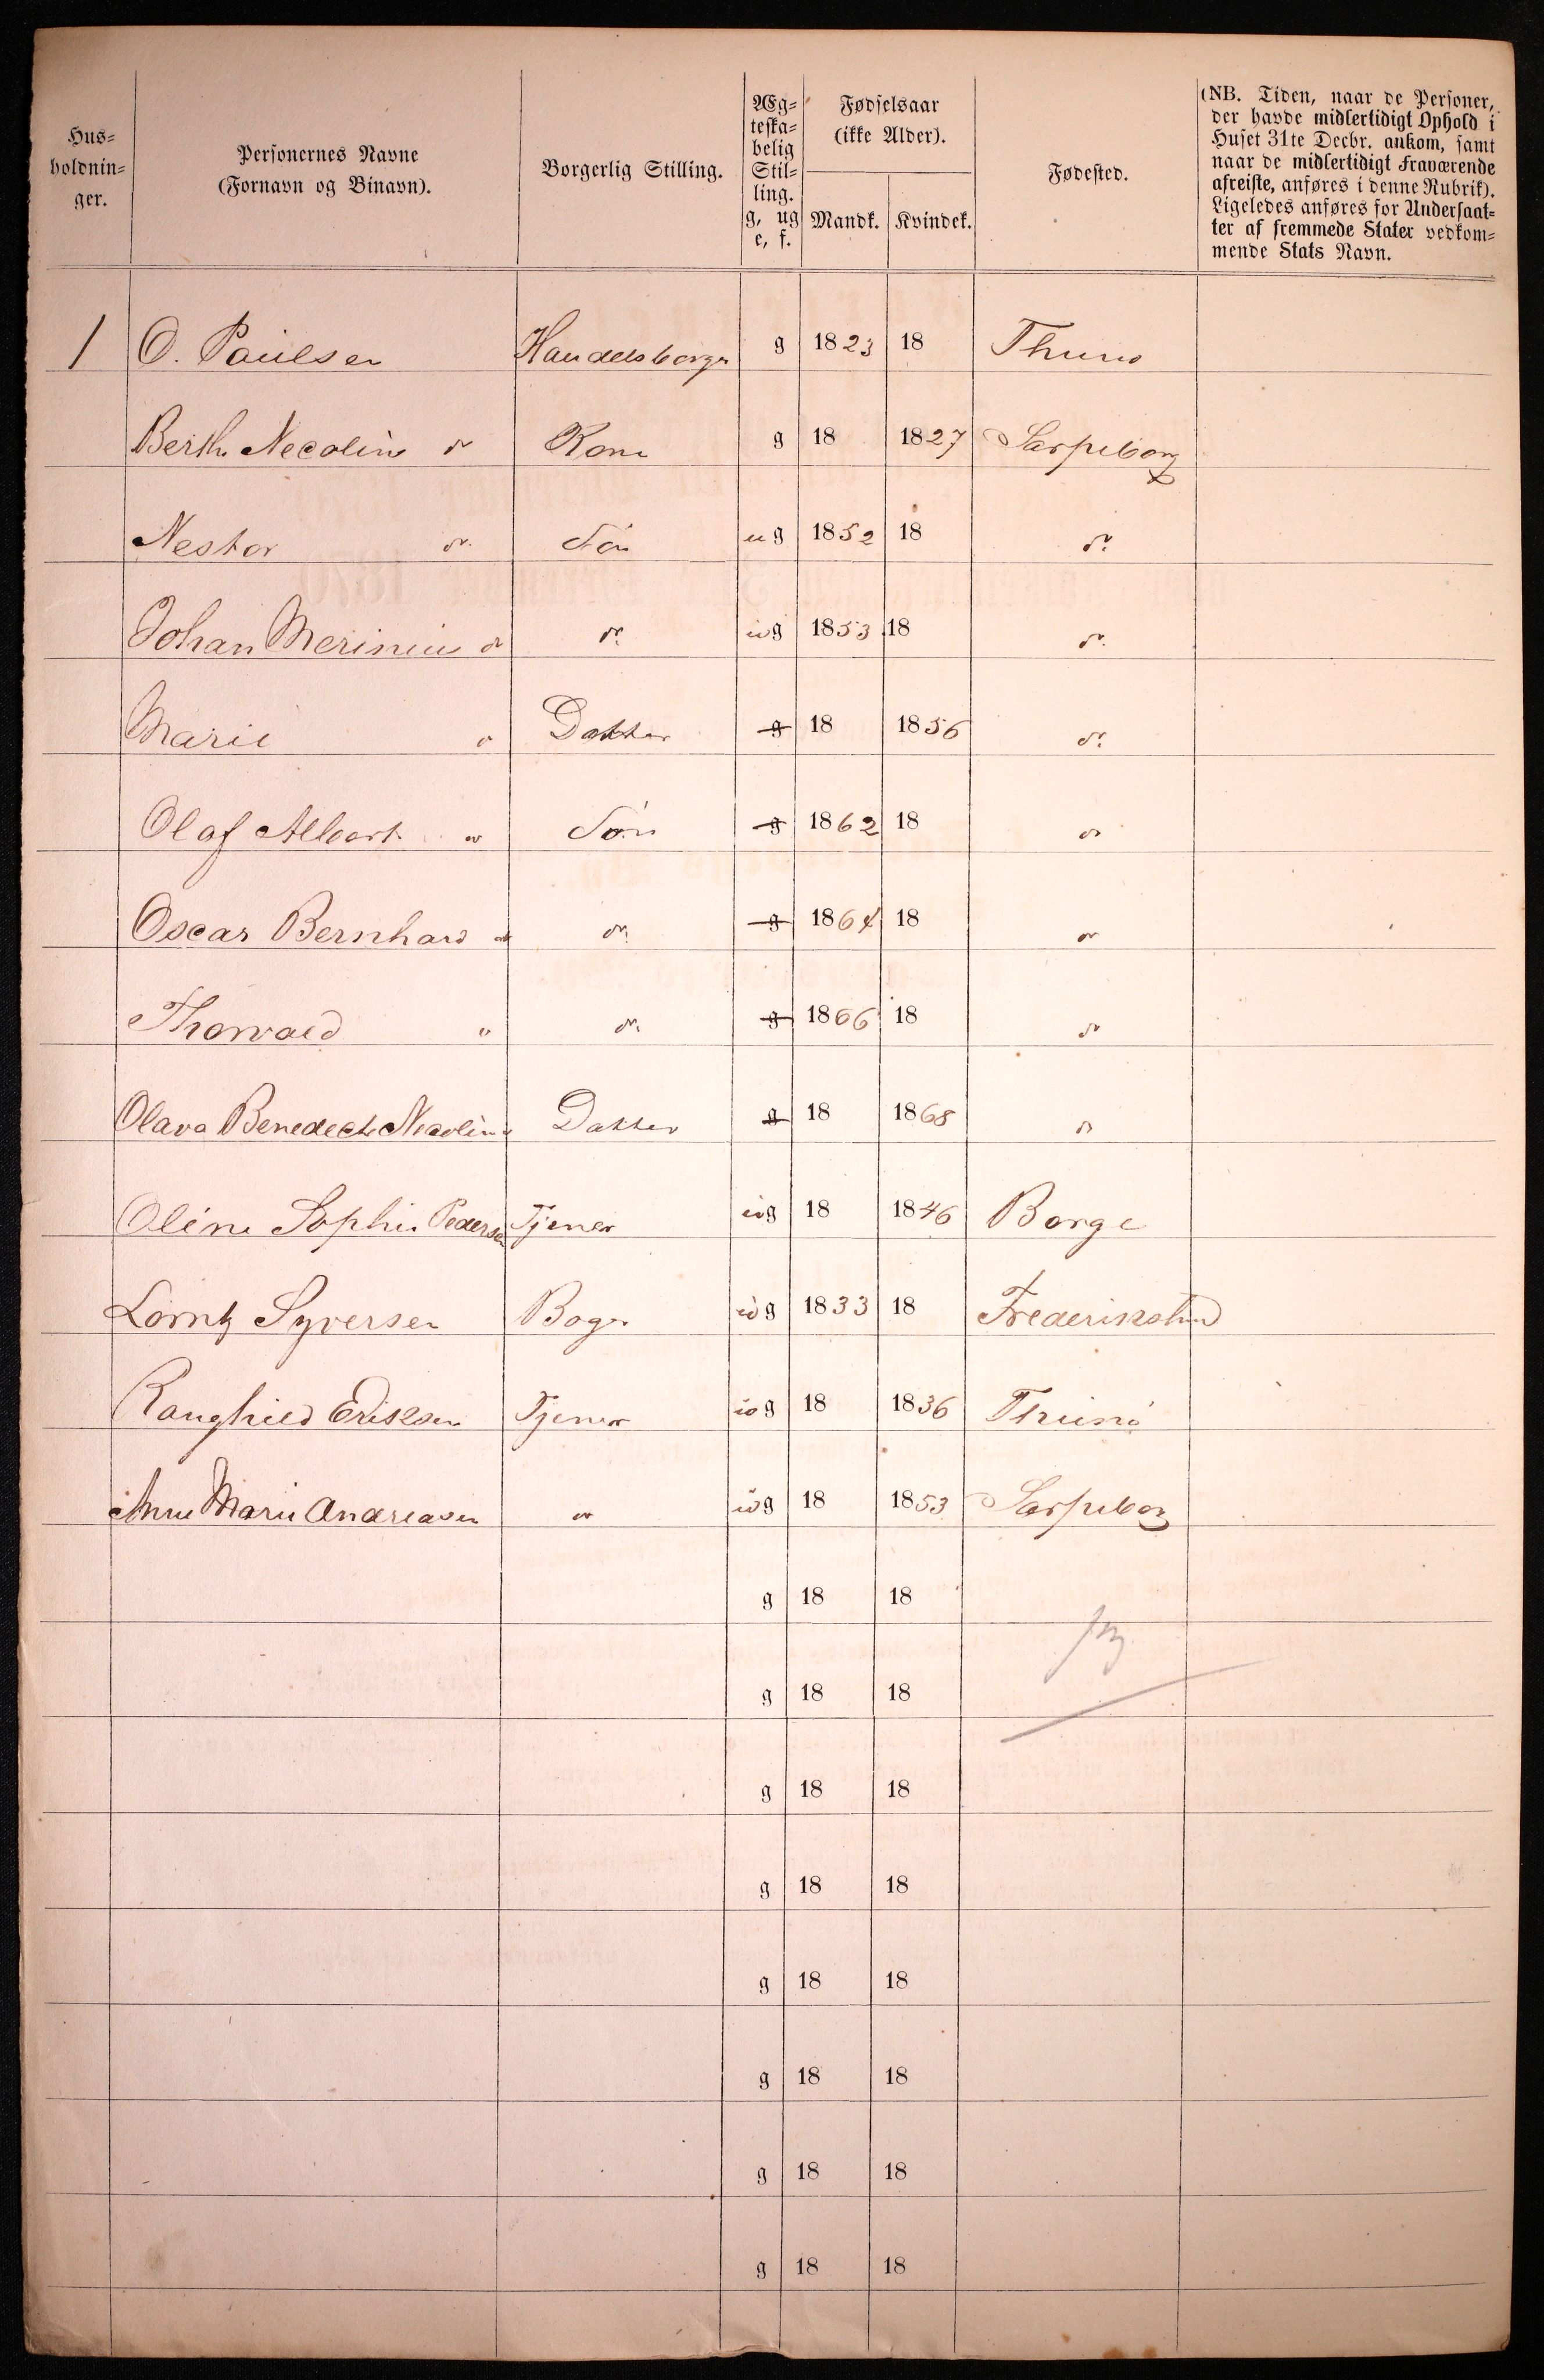 Hus-
holdnin-
ger.
Personernes Navne
(Fornavn og Binavn).
Borgerlig Stilling.
Æg-
teska-
belig
Stil-
ling.
g, ug
e, f.
Fødselsaar
(ikke Alder).
Mandk. Kvindek.
Fødested.
(NB. Tiden, naar de Personer,
der havde midlertidigt Ophold i
Huset 31te Decbr. ankom, samt
naar de midlertidigt Fraværende
afreiste, anføres i denne Rubrik).
Ligeledes anføres for Undersaat-
ter af fremmede Stater vedkom-
mende Stats Navn.
1 O. Paulsen Handelsborger g 1823 18 Thunø
Berth Necoline do Kone g 18 1827 Sarpsborg
Nestor do. Søn ug 1852 18 do.
Johan Merinius do do. ug 1853 18 do.
Marie do Datter g 18 1856 do.
Olaf Albert do Søn g 1862 18 do
Oscar Bernhard do do. g 1864 18 do
Thorvald " do. g 1866 18 do
Olava Benedecte Necoline Datter g 18 1868 do
Oline Sophie Pedersen Tjener ug 18 1846 Borge
Lorntz Syversen Bager ug 1833 18 Frederikstad
Ranghild Eriksen Tjener ug 18 1836 Thunø
Anne Marie Andreasen do ug 18 1853 Sarpsborg
g 18 18
g 18 18
g 18 18
g 18 18
g 18 18
g 18 18
g 18 18
g 18 18